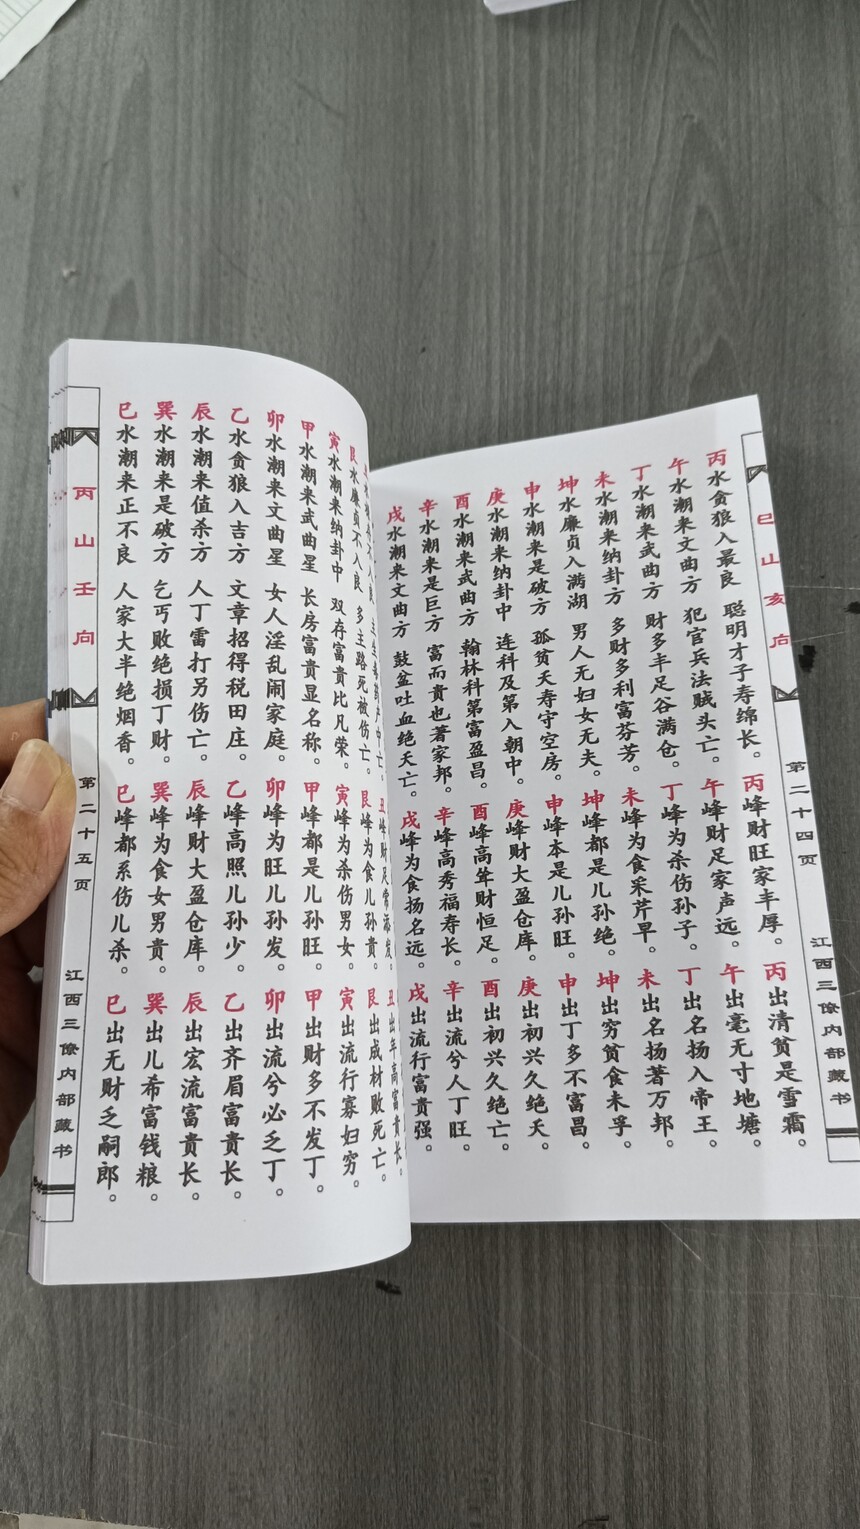 巳山亥向 第二十四页 江西三僚内部藏书
丙水贪狼入最良 聪明才子寿绵长。丙峰财旺家丰厚。丙出清贫是雪霜。
午水潮来文曲方 犯官兵法贼头亡。午峰财足家声远。午出毫无寸地塘。
丁水潮来武曲方 财多丰足谷满仓。丁峰为杀伤孙子。丁出名扬入帝王。
未水潮来纳卦方 多财多利富芬芳。未峰为食采芹早。未出名扬著万邦。
坤水廉贞入满湖 男人无妇女无夫。坤峰都是儿孙绝。坤出穷贫食未孚。
申水潮来是破方 孤贫夭寿守空房。申峰本是儿孙旺。申出丁多不富昌。
庚水潮来纳卦中 连科及第入朝中。庚峰财大盈仓库。庚出初兴久绝夭。
酉水潮来武曲方 翰林科第富盈昌。酉峰高耸财恒足。酉出初兴久绝亡。
辛水潮来是巨方 富而贵也著家邦。辛峰高秀福寿长。辛出流兮人丁旺。
戌水潮来文曲方 鼓盆吐血绝夭亡。戌峰为食扬名远。戌出流行富贵强。
丑峰财足常添发。丑出年高富贵长。
艮水廉贞不入良 多主路死被伤亡。艮峰为食儿孙贵。艮出成材败死亡。
寅水潮来纳卦中 双存富贵比凡荣。寅峰为杀伤男女。寅出流行寡妇穷。
甲水潮来武曲星 长房富贵显名称。甲峰都是儿孙旺。甲出财多不发丁。
卯水潮来文曲星 女人淫乱闹家庭。卯峰为旺儿孙发。卯出流兮必乏丁。
乙水贪狼入吉方 文章招得税田庄。乙峰高照儿孙少。乙出齐眉富贵长。
辰水潮来值杀方 人丁雷打另伤亡。辰峰财大盈仓库。辰出宏流富贵长。
巽水潮来是破方 乞丐败绝损丁财。巽峰为食女男贵。巽出儿希富钱粮。
巳水潮来正不良 人家大半绝烟香。巳峰都系伤儿杀。巳出无财乏嗣郎。
丙山壬向 第二十五页 江西三僚内部藏书